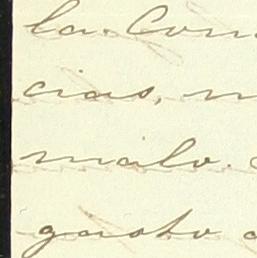 la Com
cias, m
malo.
gasto